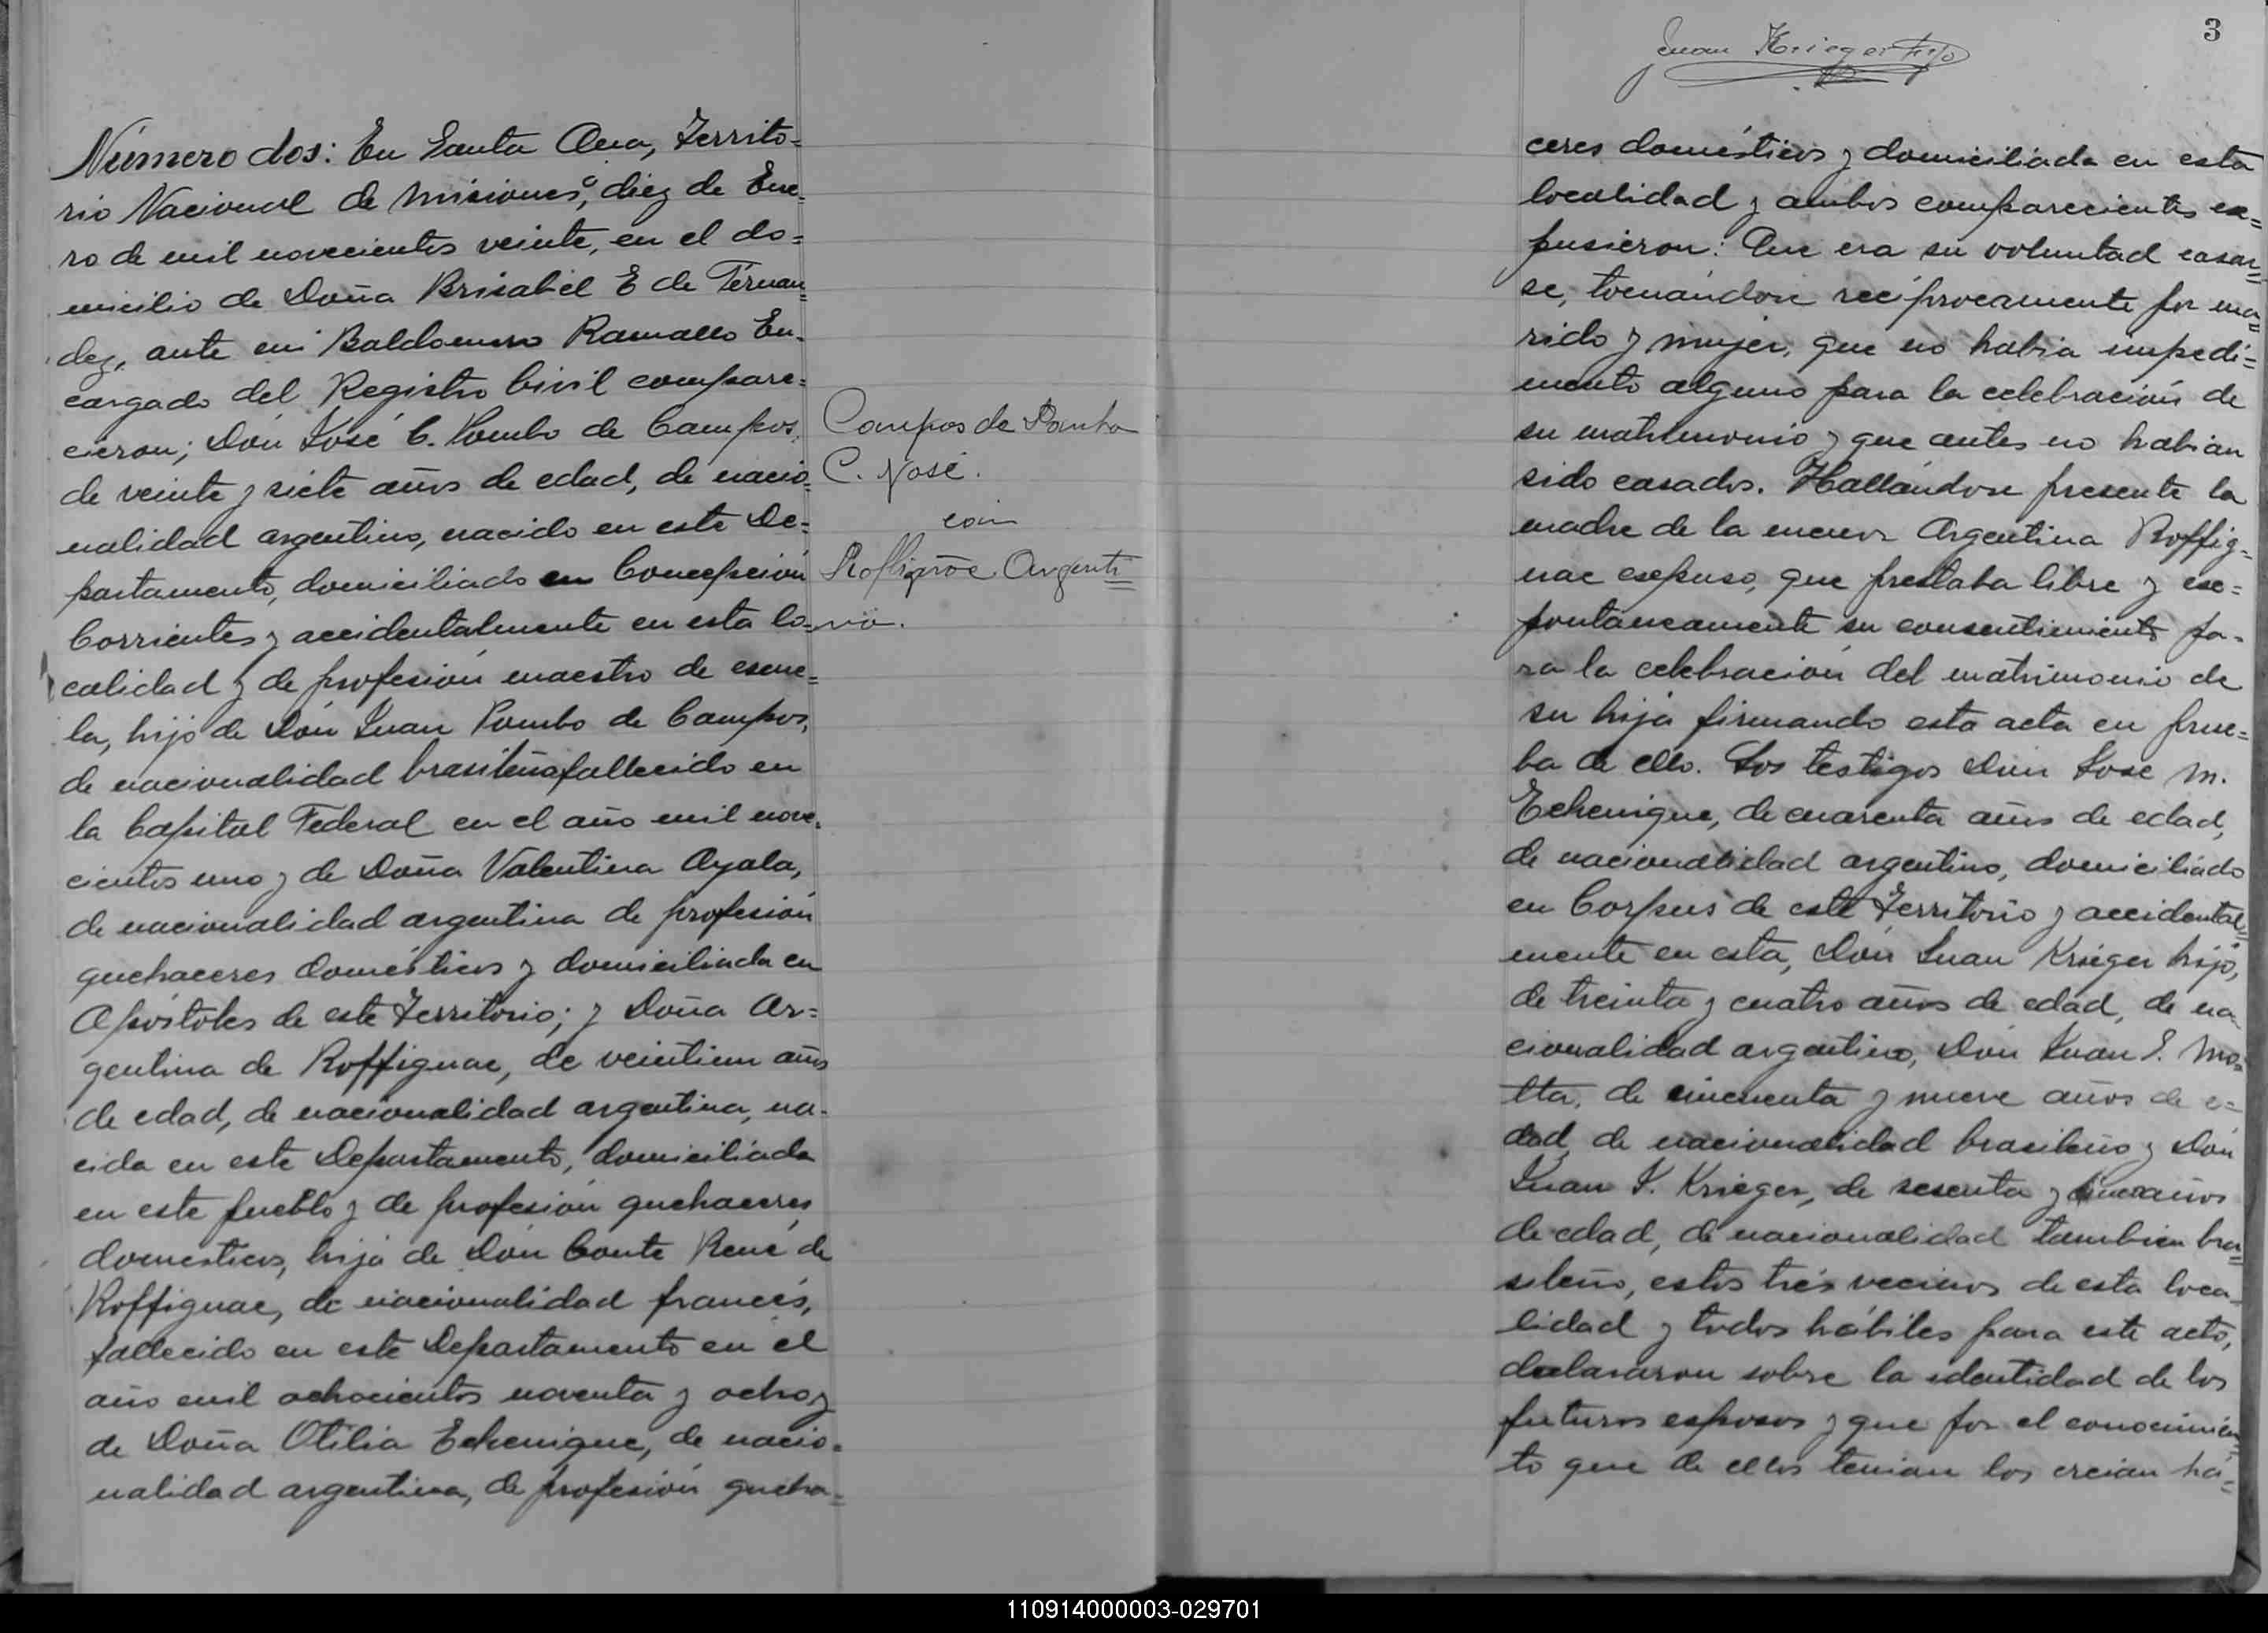 Número dos: En Santa Ana, Territo=
rio Nacional de Misiones, á diez de Ene=
ro de mil novecientos veinte, en el do=
micilio de Doña Brisabél E de Férnan=
dez, ante mi Baldomero Ramallo En=
cargado del Registro Civil compare=
cieron; Don José C. Pombo de Campos,
de veinte y siete años de edad, de nacio=
nalidad argentino, nacido en este De=
partamento, domiciliado en Concepción
Corrientes y accidentalmente en esta lo=
calidad y de profesión maestro de escue=
la, hijo de Don Juan Pombo de Campos,
de nacionalidad brasileña fallecido en
la Capital Federal en el año mil nove=
cientos uno y de Doña Valentina Ayala,
de nacionalidad argentina de profesión
quehaceres domésticos y domiciliada en
Apóstoles de este Territorio; y Doña Ar=
gentina de Roffignac, de veintiun años
de edad, de nacionalidad argentina, na=
cida en este Departamento, domiciliada
en este pueblo y de profesión quehaceres
domésticos, hija de Don Conte René de
Roffignac, de nacionalidad francés,
fallecido en este Departamento en el
año mil ochocientos noventa y ocho y
de Doña Otilia Echenique, de nacio=
nalidad argentina, de profesión queha=
Campos de Pombo
C. José.
con
Roffignac Argenti=
na.
Juan Krieger hijo
3
ceres domésticos y domiciliada en esta
localidad y ambos comparecientes ex=
pusieron: Que era su voluntad casar=
se, tomándose recíprocamente por ma=
rido y mujer, que no habia impedi=
mento alguno para la celebración de
su matrimonio y que antes no habian
sido casados. Hallándose presente la
madre de la menor Argentina Roffig=
nac expuso, que prestaba libre y es=
pontaneamente su consentimiento pa=
ra la celebración del matrimonio de
su hija firmando esta acta en prue=
ba de ello. Los testigos Don José M.
Echenique, de cuarenta años de edad,
de nacionalidad argentino, domiciliado
en Corpus de este Territorio y accidental=
mente en esta, Don Juan Krieger hijo,
de treinta y cuatro años de edad, de na=
cionalidad argentino, Don Juan S. Mo=
tta, de cincuenta y nueve años de e=
dad, de nacionalidad brasileño y Don
Juan J. Krieger, de sesenta y años
de edad, de nacionalidad tambien bra=
sileño, estos trés vecinos de esta loca=
lidad y todos hábiles para este acto,
declararon sobre la identidad de los
futuros esposos y que por el conocimien=
to que de ellos tenian los creian há=
110914000003-029701